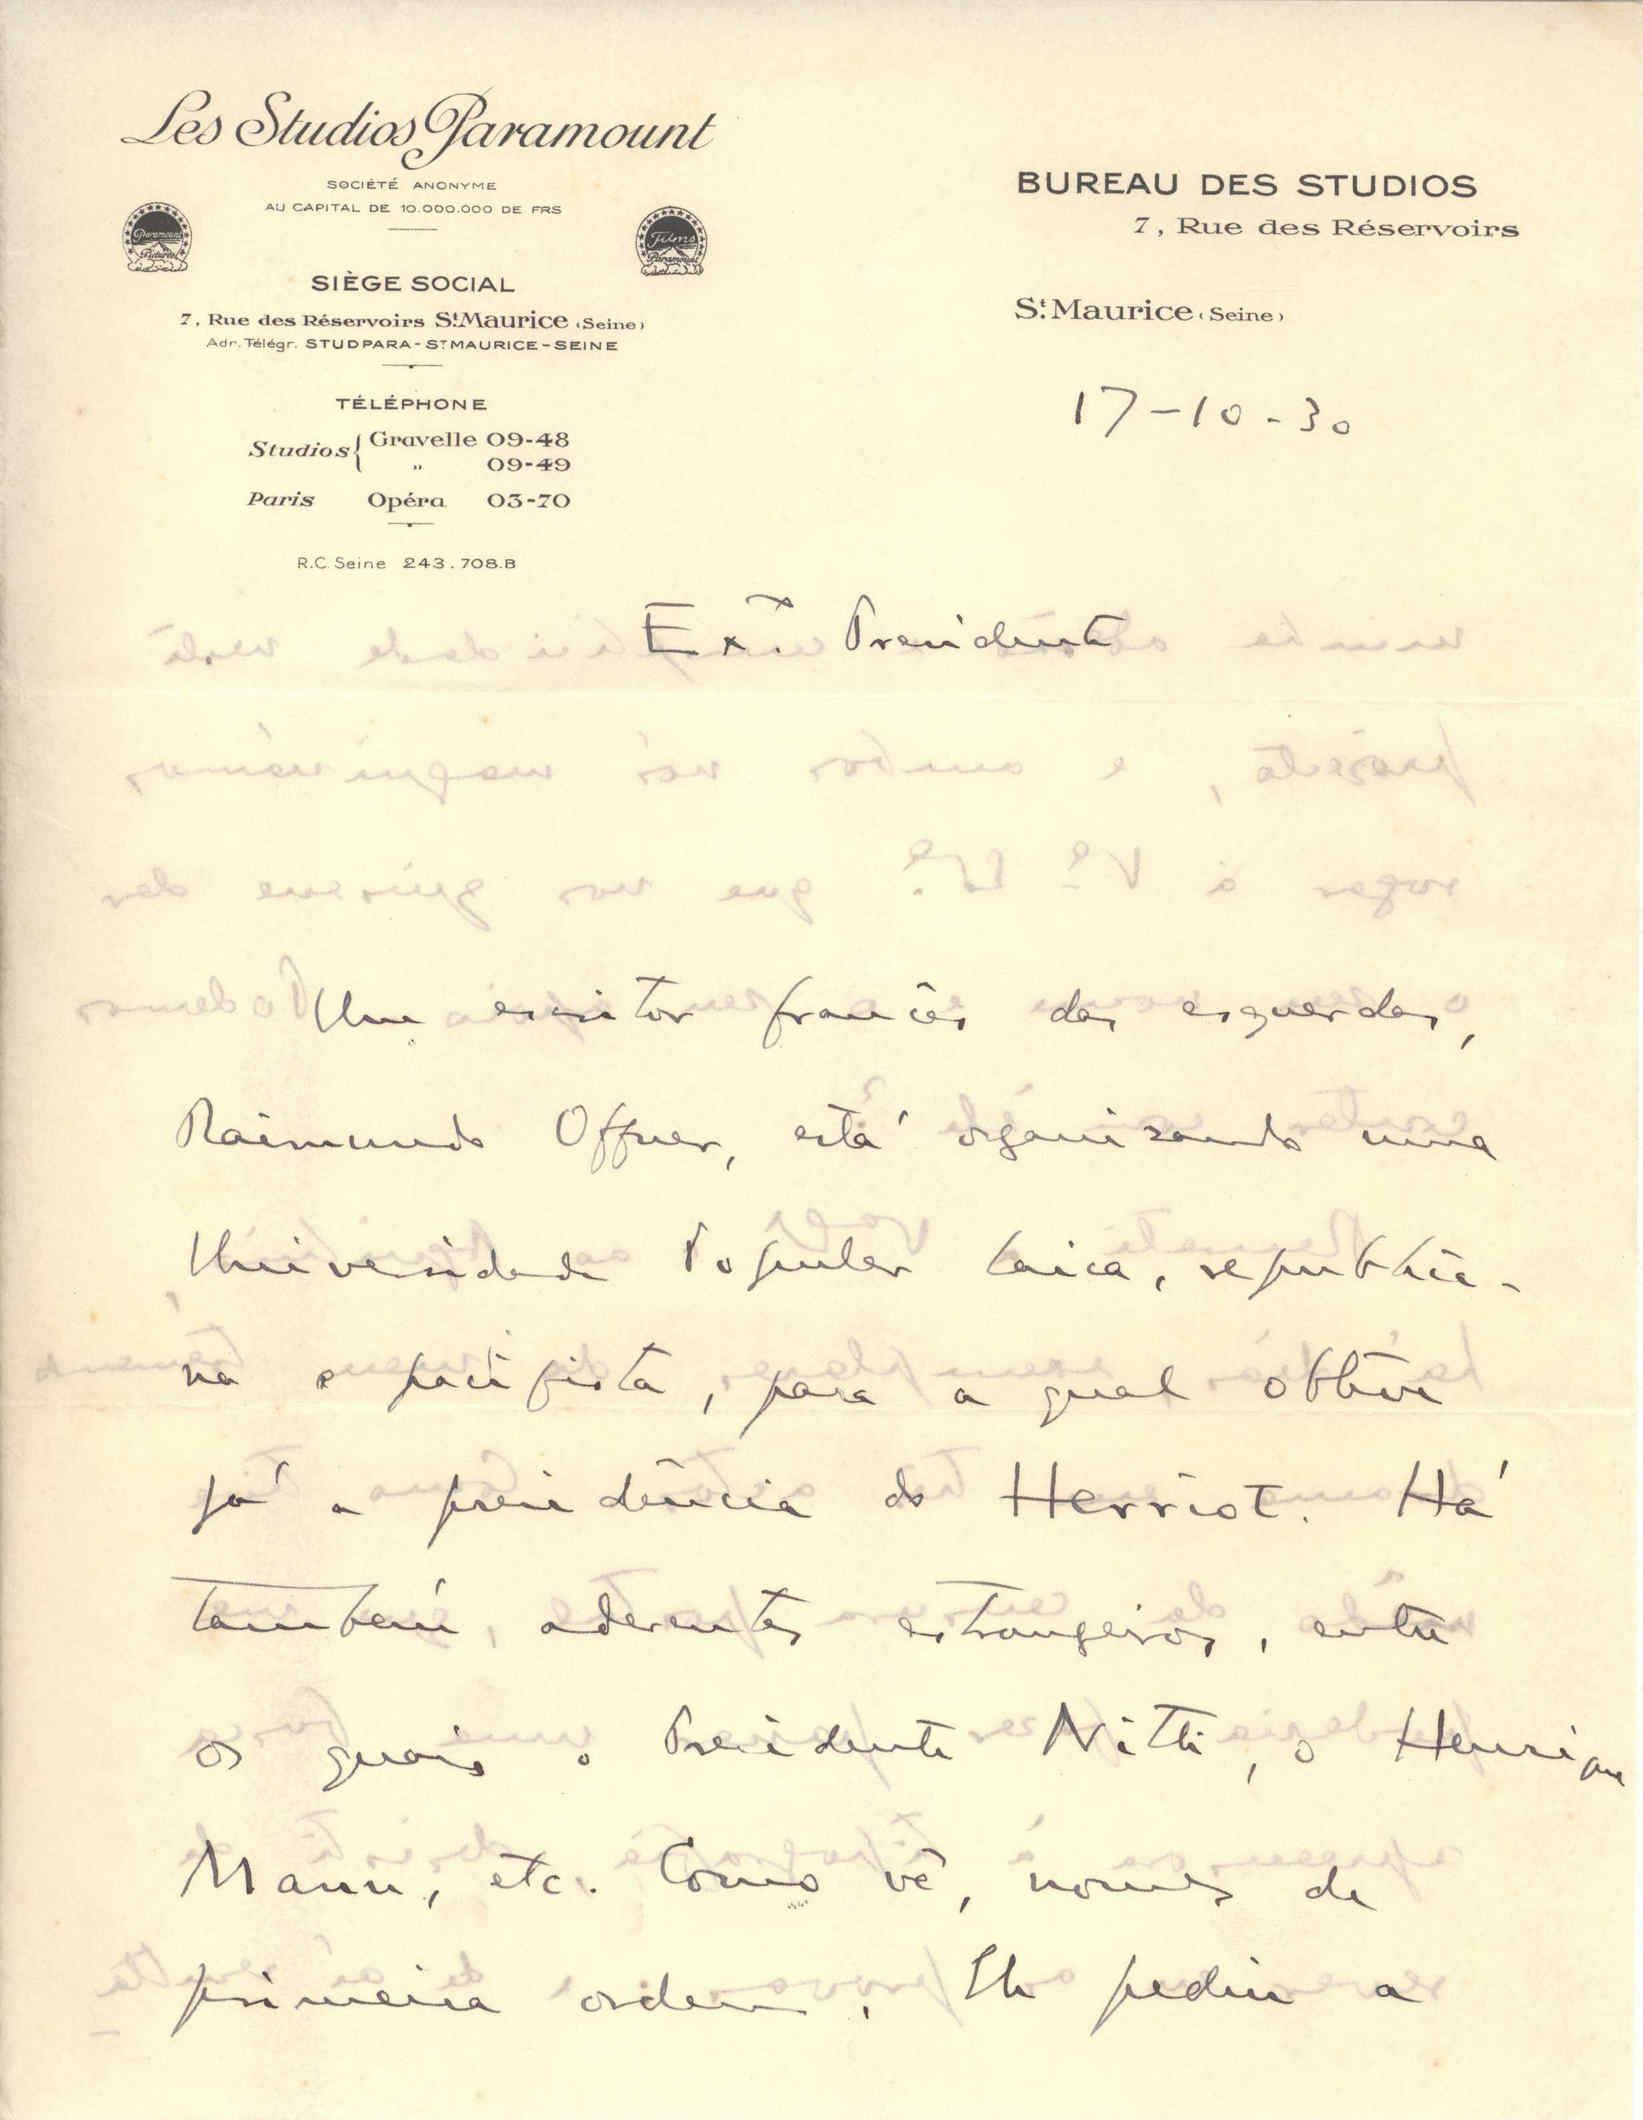 Les Studios Paramount
SOCIÉTÉ ANONYME
AU CAPITAL DE 10.000.000 DE FRS
Paramount Pictures
Films Paramount
SIÈGE SOCIAL
7, Rue des Réservoirs St. Maurice (Seine)
Adr. Télégr. STUDPARA-ST MAURICE-SEINE
TÉLÉPHONE
Studios { Gravelle 09-48
" 09-49
Paris Opéra 03-70
R.C. Seine 243.708.B
BUREAU DES STUDIOS
7, Rue des Réservoirs
St. Maurice (Seine)
17-10-30
Exº. Presidente
Um escritor francês das esquerdas,
Raimundo Offner, está organisando uma
Universidade Popular laica, republica-
na e pacifista, para a qual obteve
já a presidência do Herriot. Há
também, aderentes estrangeiros, entre
os quais o Presidente Nitti, o Henrique
Mann, etc. Como vê, nomes de
primeira ordem. Ele pediu a